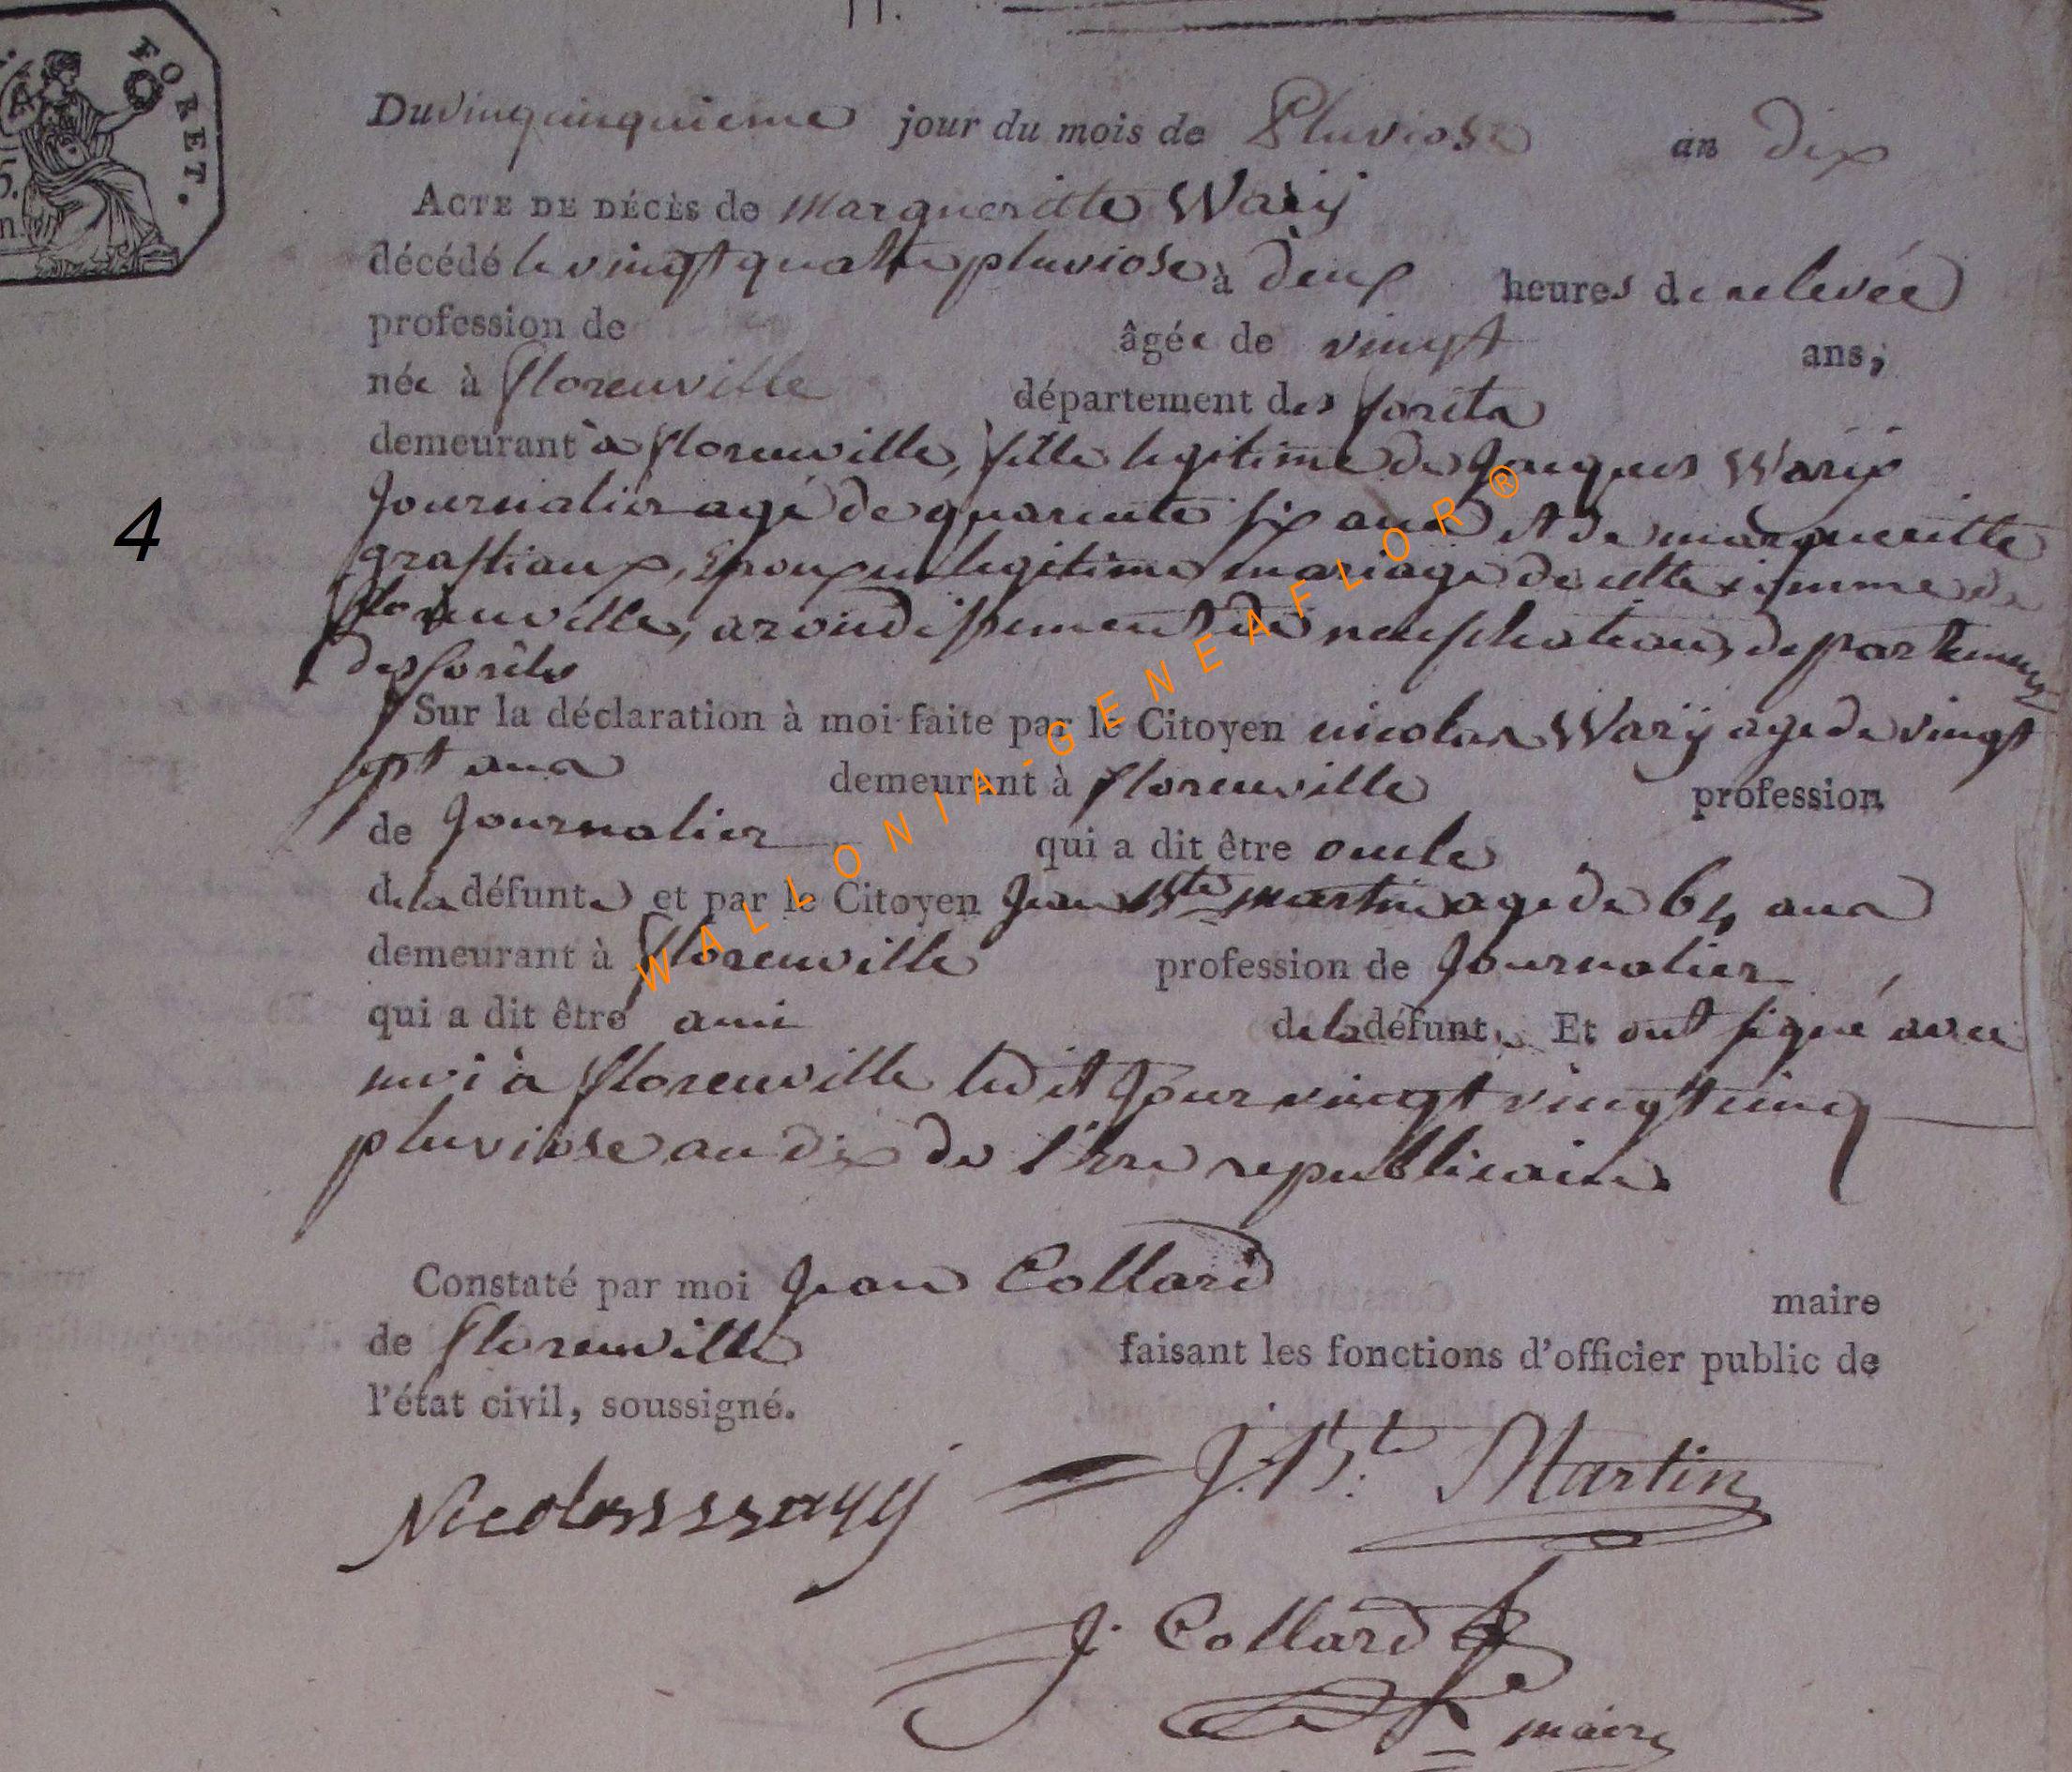 FORET.
Du vinqcinquieme jour du mois de Pluviose an dix
ACTE DE DÉCÈS de Margueritte Warÿ
décédé le vingt quatre pluviose à deux heures de relevée
profession de âgée de vingt ans,
née à florenville département des forêts
demeurant à florenville, fille legitime de Jacques Warÿ
Journalier agé de quarente six ans et de margueritte
grastiaux, Epoux en legitime mariage de cette comune de
florenville, arondissement de neufchateau, departement
des forêts
Sur la déclaration à moi faite par le Citoyen nicolas Warÿ agé de vingt
sept ans demeurant à florenville profession
de Journalier qui a dit être oncle
de la défunte et par le Citoyen Jean Bte martin agé de 64 ans
demeurant à florenville profession de Journalier
qui a dit être ami de la défunte Et ont signé avec
moi à florenville ledit Jour vingt vingt cinq
pluviose an dix de l'Ere republicaine.
4
WALLONIA-GENEAFLOR®
Constaté par moi Jean Collard maire
de florenville faisant les fonctions d'officier public de
l'état civil, soussigné.
Nicolas Warÿ J. Bte Martin
J. Collard
maire